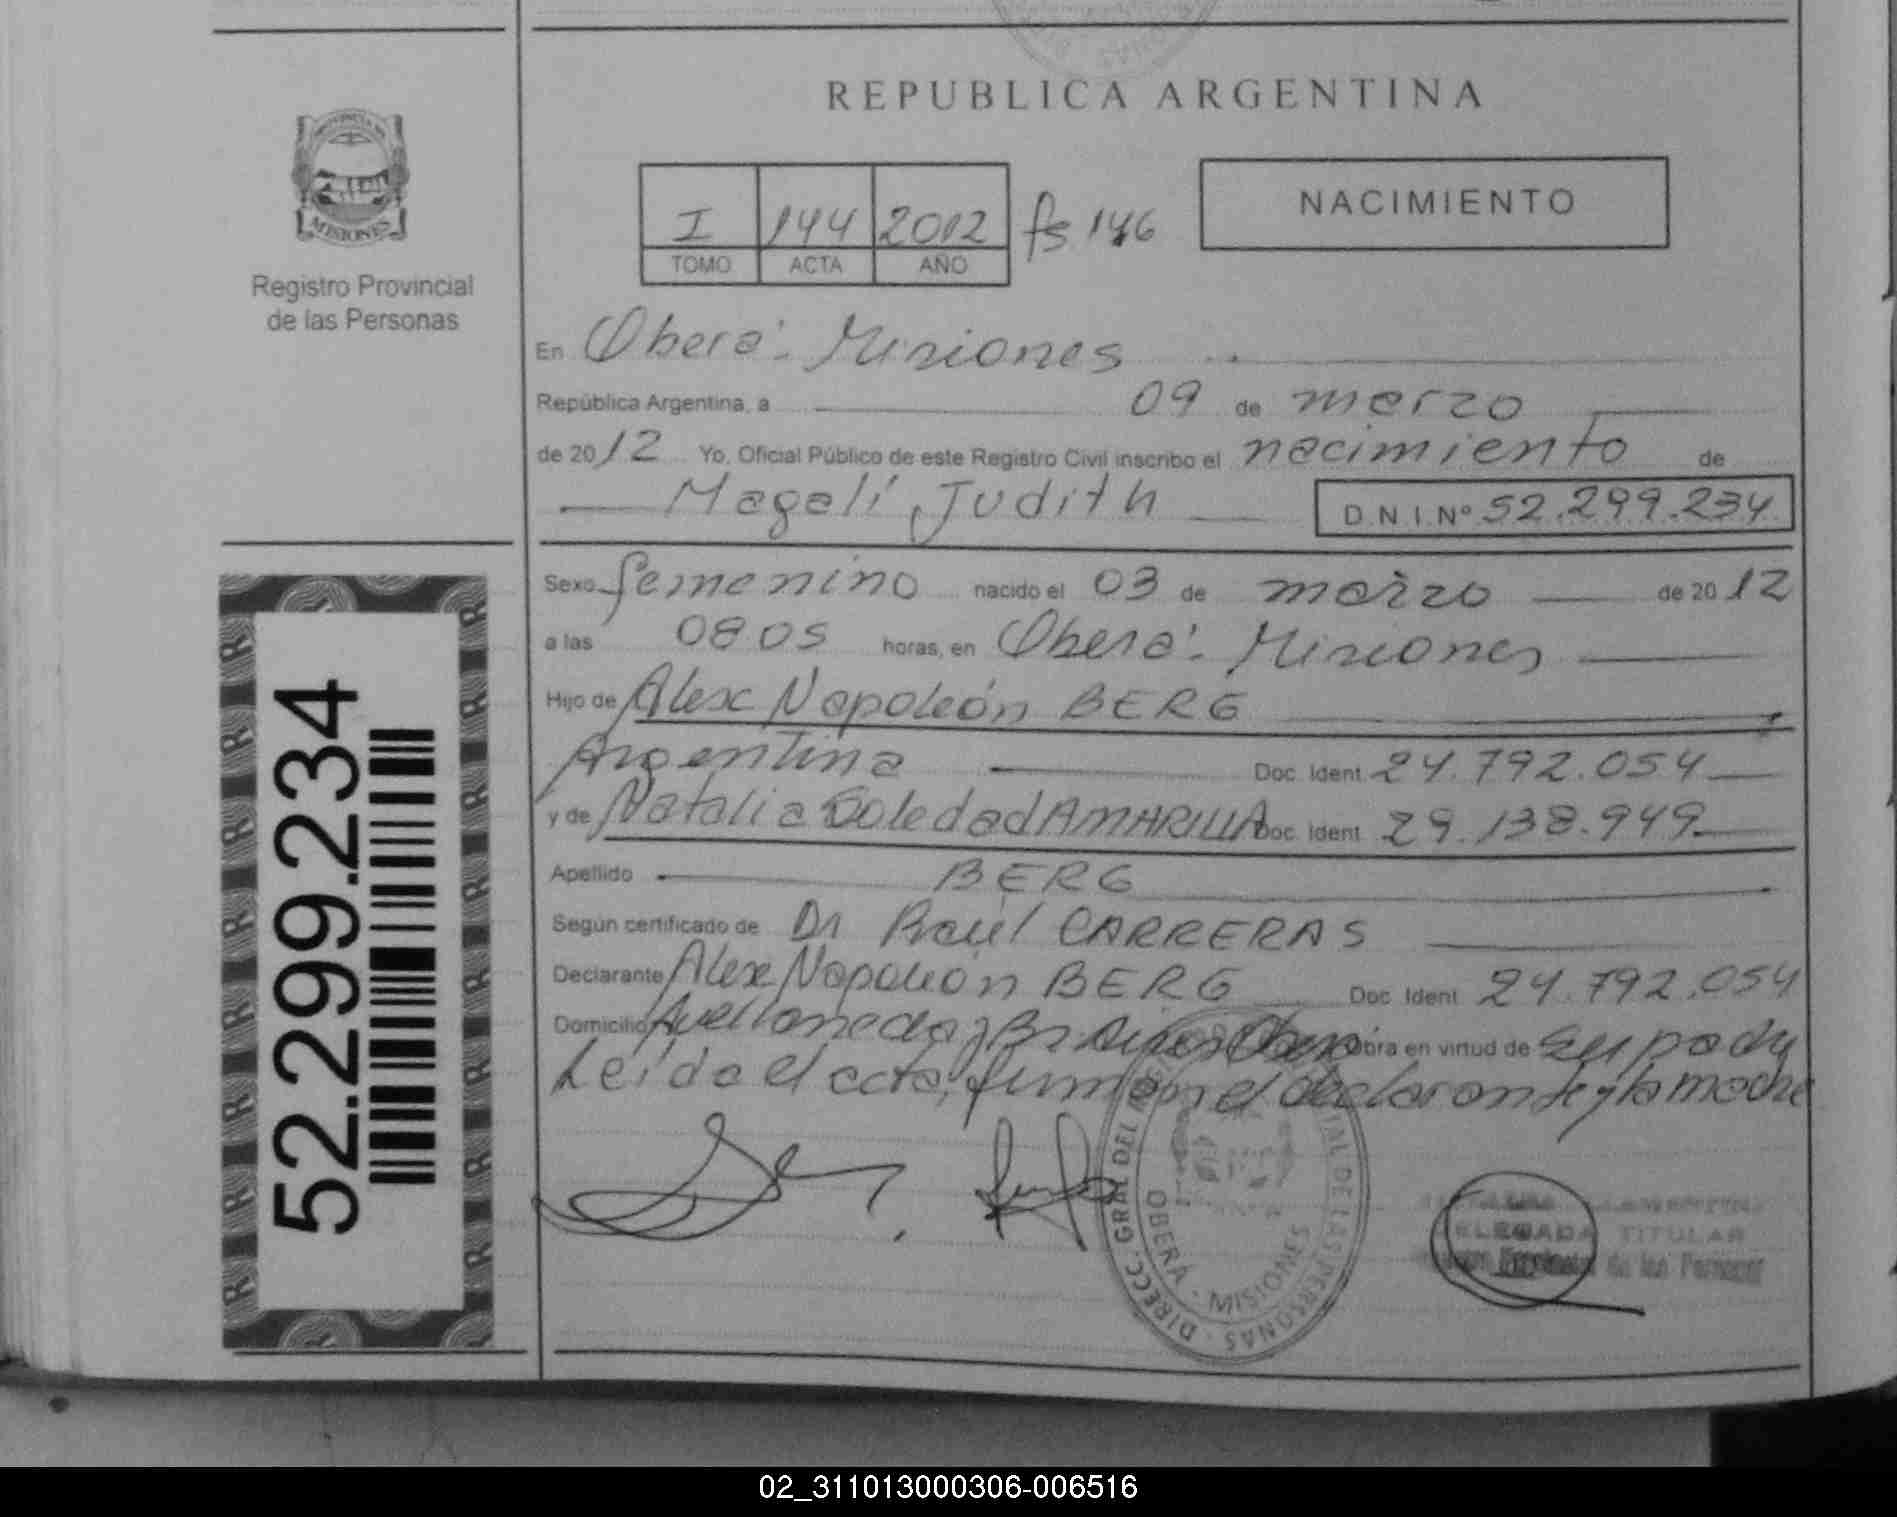 REPUBLICA ARGENTINA
PROVINCIA DE
MISIONES
Registro Provincial
de las Personas
I 144 2012 fs 146
TOMO ACTA AÑO
NACIMIENTO
En Oberá: Misiones
República Argentina, a 09 de marzo
de 2012 Yo, Oficial Público de este Registro Civil inscribo el nacimiento de
Magalí Judith D.N.I.Nº 52.299.234
Sexo femenino nacido el 03 de marzo de 2012
a las 0805 horas, en Oberá: Misiones
Hijo de Alex Napoleón BERG
Argentina Doc. Ident. 24.792.054
y de Natalia Soledad AMARILLA Doc. Ident. 29.138.949
Apellido BERG
Según certificado de Dr Raúl CARRERAS
Declarante Alex Napoleón BERG Doc. Ident. 24.792.054
Domicilio Avellaneda y Bs Aires Oberá Obra en virtud de su pedido
Leída el acta, firman el declarante y la madre
52.299.234
DIRECC. GRAL DEL DE LAS PERSONAS
OBERÁ - MISIONES
DELEGADA TITULAR
de las Personas
02_311013000306-006516